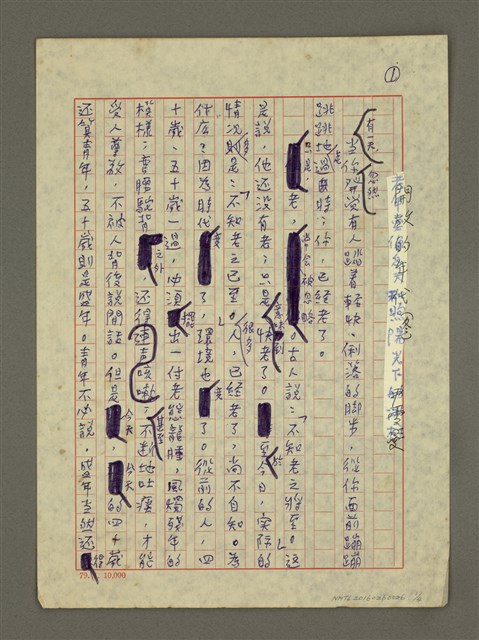 ①
有一天,當你忽然發覺有人踏着輕快、俐落的脚步,從你面前蹦蹦
跳跳地走過去時;你,已經老了。
只是,老,也會被忽略。古人說:「不知老之將至。」這
是說,他還沒有老;只是意味到快老了。至於今日,實際的
情況則多是:「不知老之已至。」很多人,已經老了,尚不自知。為
什広?因為時代變了,環境也變了。從前的人,四
十歲、五十歲一過,必須擺出一付老態龍腫,風燭殘年的
模樣;彎腰駝背之外,還得連聲咳嗽;甚至不斷地吐痰,才能
受人尊敬,不被人背後說閒話。但是今天,今天的四十歲
還算青年,五十歲則是盛年。青年不必說,盛年當然還
79. 10,000